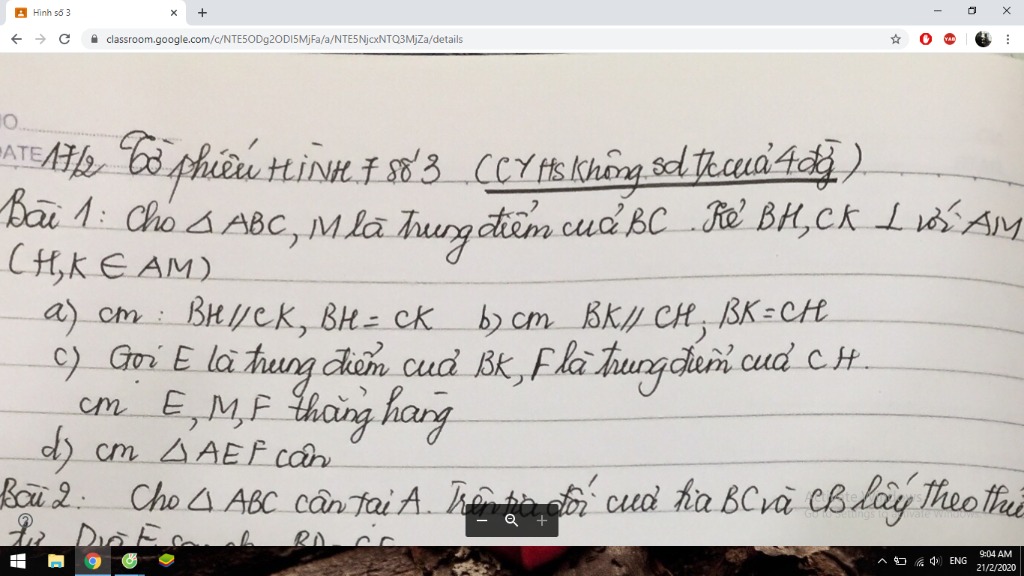 Hình số 3
classroom.google.com/c/NTE5ODg2ODI5MjFa/a/NTE5NjcxNTQ3MjZa/details
DATE 17/2 Tờ phiếu HÌNH 7 số 3 (CYHS không sd tc của 4 đg)
Bài 1: Cho △ ABC, M là trung điểm của BC. Kẻ BH, CK ⊥ với AM
(H,K ∈ AM)
a) cm : BH//CK, BH = CK b) cm BK // CH; BK = CH
c) Gọi E là trung điểm của BK, F là trung điểm của CH.
cm E, M, F thẳng hàng
d) cm △AEF cân
Bài 2: Cho △ ABC cân tại A. Trên tia đối của tia BC và CB lấy theo thứ
ENG
9:04 AM
21/2/2020